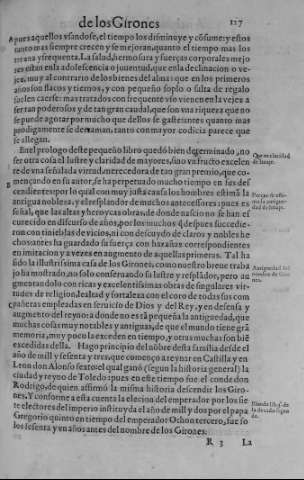 de los Girones 117
A pues aquellos vsandose, el tiempo los disminuye y cõsume: y estos
tanto mas siempre crecen y se mejoran, quanto el tiempo mas los
trata y frequenta. La salud, hermosura y fuerças corporales mejo
res estan en la adolescencia o juuentud, que en la declinacion o ve-
jez, muy al contrario de los bienes del alma: que en los primeros
años son flacos y tiernos, y con pequeño soplo o falta de regalo
suelen caerse: mas tratados con frequente vso vienen en la vejez a
ser tan poderosos y de tan gran caudal, que son vna riqueza que no
se puede agotar por mucho que dellos se gaste: antes quanto mas
prodigamente se derraman, tanto con mayor codicia parece que
se allegan.
En el prologo deste pequeño libro quedò bien determinado, no
ser otra cosa el lustre y claridad de mayores, sino vn fructo excelen
te de vna señalada virtud, merecedora de tan gran premio, que co-
B mençando en su autor, se ha perpetuado mucho tiempo en sus des
cendientes: por lo qual con muy justa causa los hombres estimã la
antigua nobleza, y el resplandor de muchos antecessores: pues es
señal, que las altas y heroycas obras, de donde nascio no se han es
curecido en discurso de años, por los muchos q̃ despues succedie-
ron con tinieblas de vicios, ni con descuydo de claros y nobles he
chos: antes ha guardado su fuerça con hazañas correspondientes
en imitacion y a vezes en augmento de aquellas primeras. Tal ha
sido la illustrissima casa de los Girones: como nuestro breue traba
jo ha mostrado, no solo conseruando su lustre y resplãdor, pero au
gmentandolo con ricas y excelentissimas obras de singulares vir-
tudes de religion, lealtad y fortaleza con el coro de todas sus com
C pañeras empleadas en seruicio de Dios y del Rey, y en defensa y
augmento del reyno: a donde no es tã pequeña la antiguedad, que
muchas cosas muy notables y antiguas, de que el mundo tiene grã
memoria, muy poco la exceden en tiempo, y otras muchas son biẽ
excedidas della. Hago principio del nõbre desta familia desde el
año de mill y sesenta y tres, que començo a reynar en Castilla y en
Leon don Alonso sexto: el qual ganò (segun la historia general) la
ciudad y reyno de Toledo: pues en este tiempo fue el conde don
Rodrigo, de quien affirmò la misma historia descendir los Giro-
nes. Y conforme a esta cuenta la elecion del emperador por los sie
te electores del imperio instituyda el año de mill y dos por el papa
Gregorio quinto en tiempo del emperador Othon tercero, fue so
los sesenta y vn años antes del nombre de los Girones.
R 3 La
Que es claridad
de linaje.
Porque se esti-
ma la antigue-
dad de linaje.
Antiguedad del
nombre de Giro
nes.